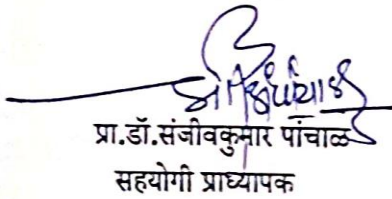 प्रा.डॉ.संजीवकुमार पांचाळ
सहयोगी प्राध्यापक